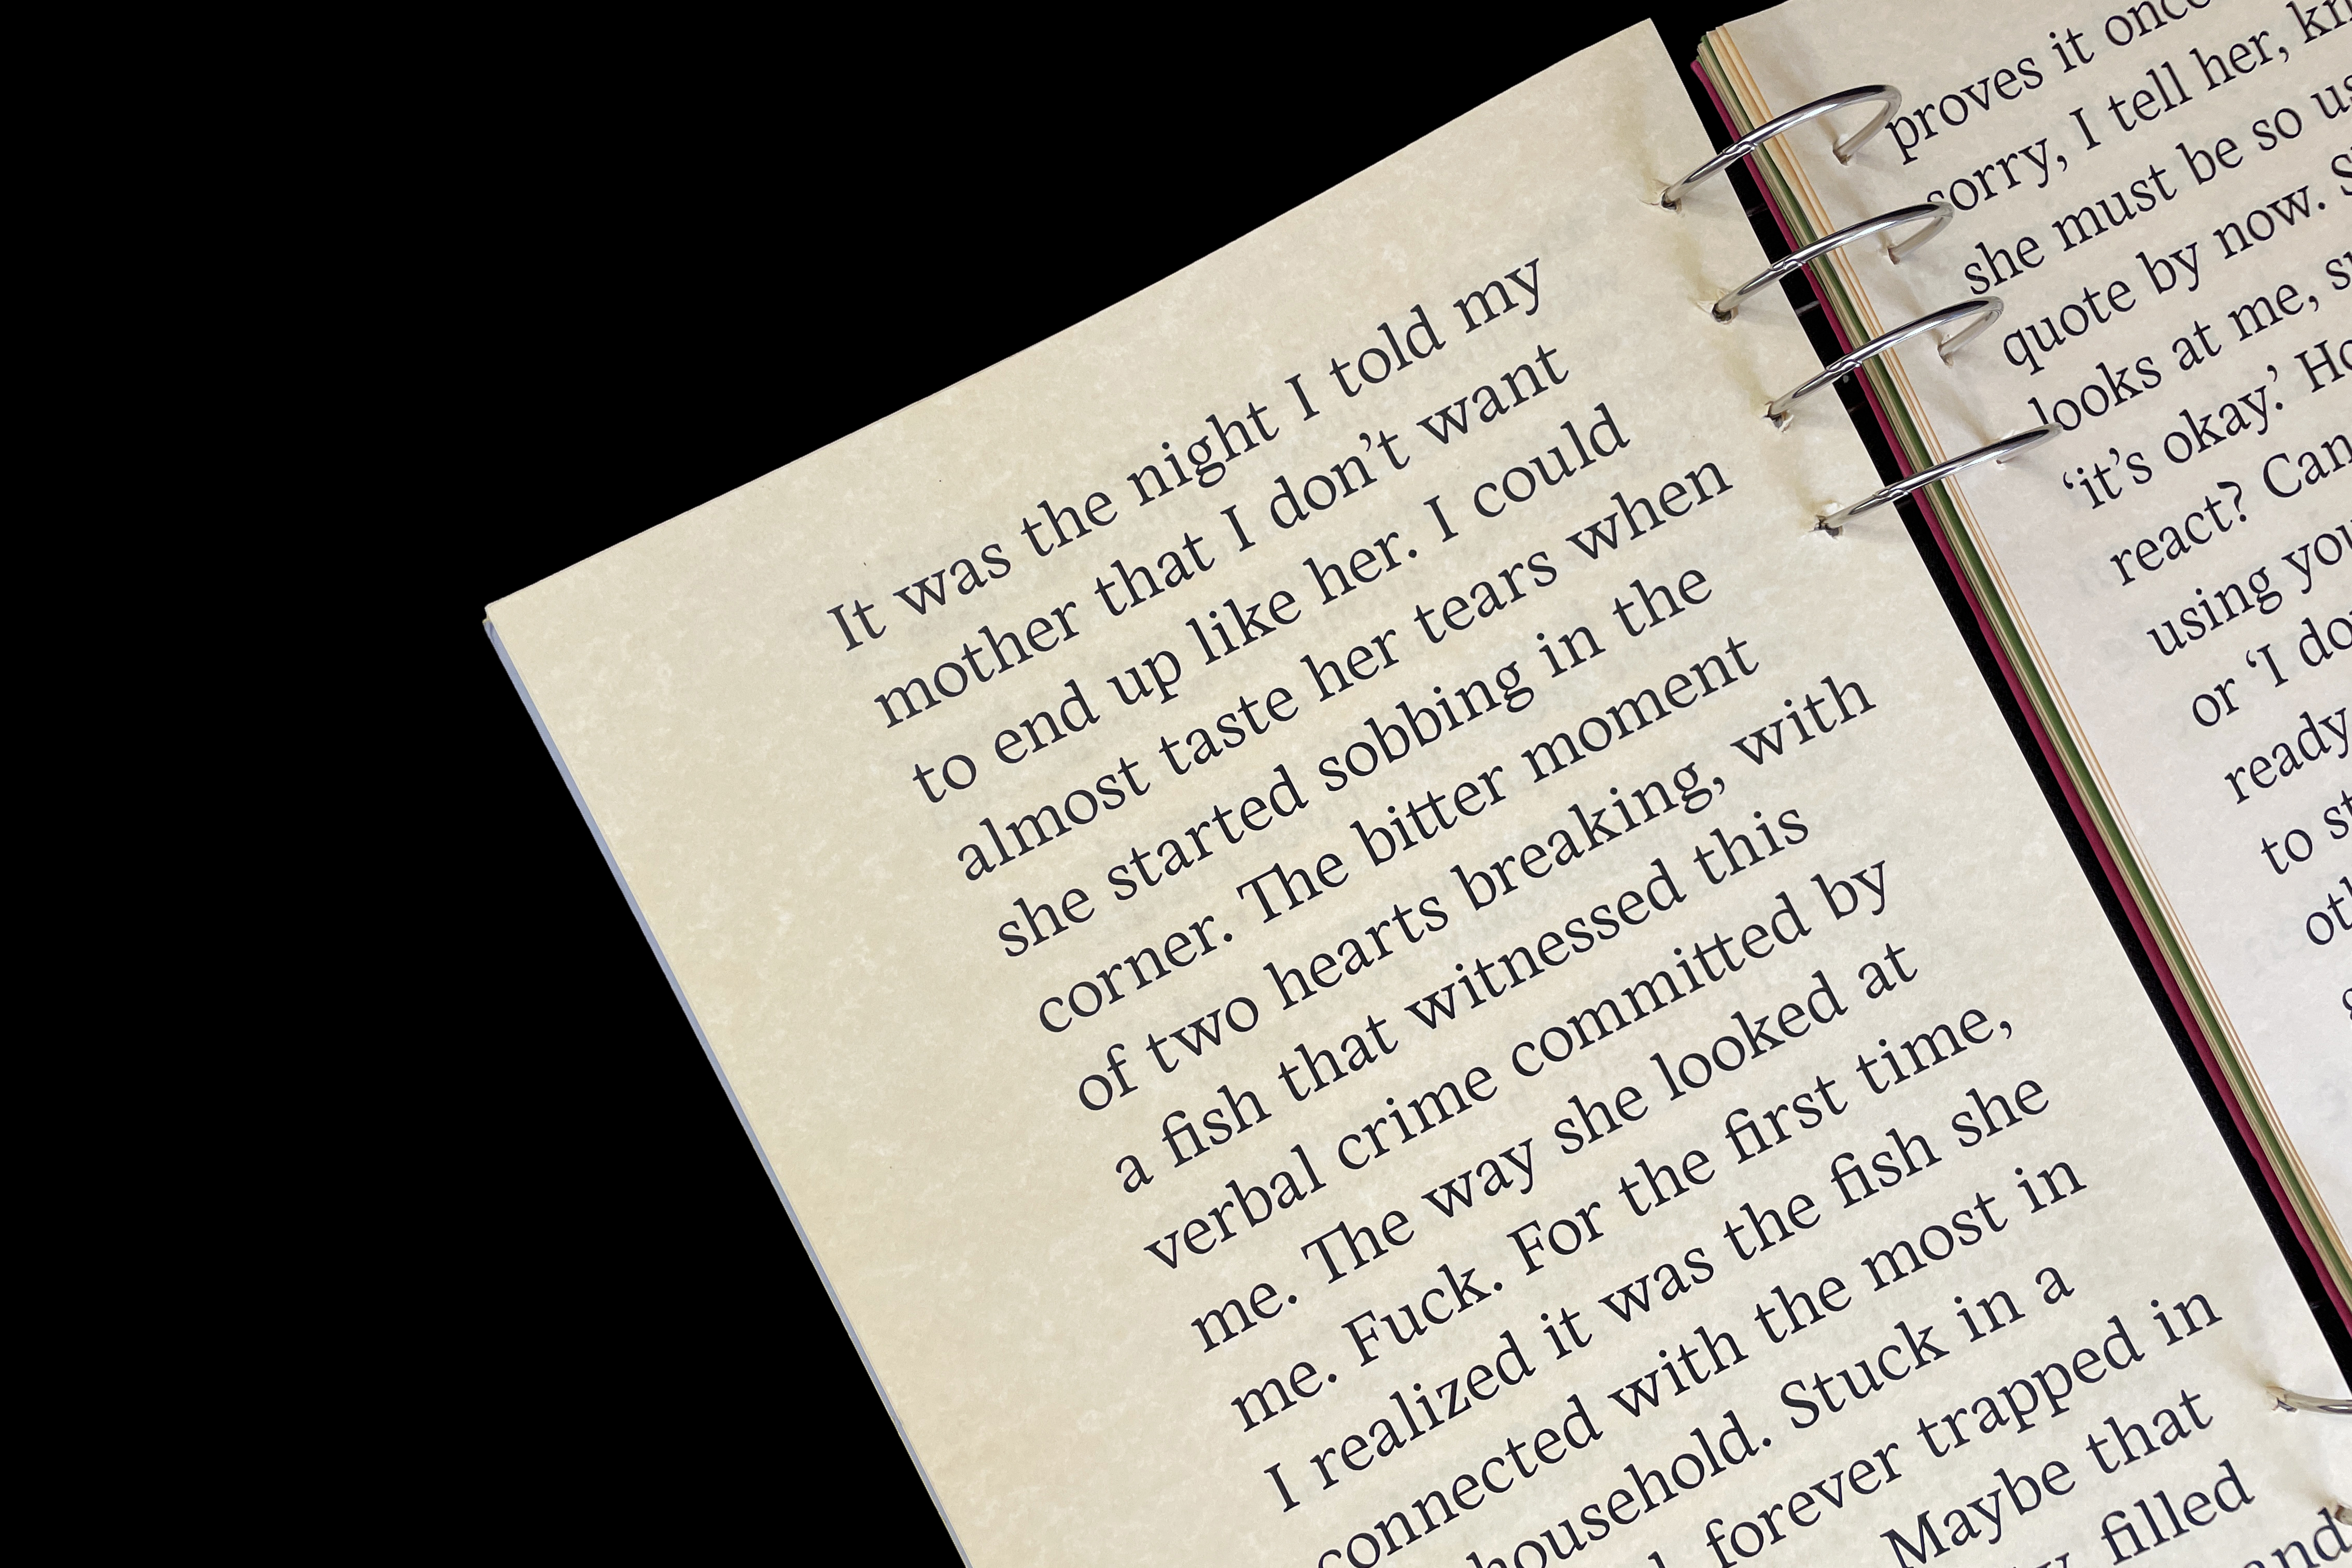 It was the night I told my
mother that I don’t want
to end up like her. I could
almost taste her tears when
she started sobbing in the
corner. The bitter moment
of two hearts breaking, with
a fish that witnessed this
verbal crime committed by
me. The way she looked at
me. Fuck. For the first time,
I realized it was the fish she
connected with the most in
household. Stuck in a
forever trapped in
Maybe that
filled
and
proves it once
sorry, I tell her,
she must be so
quote by now.
looks at me,
‘it’s okay.’
react? Can
using
or ‘I
ready
to